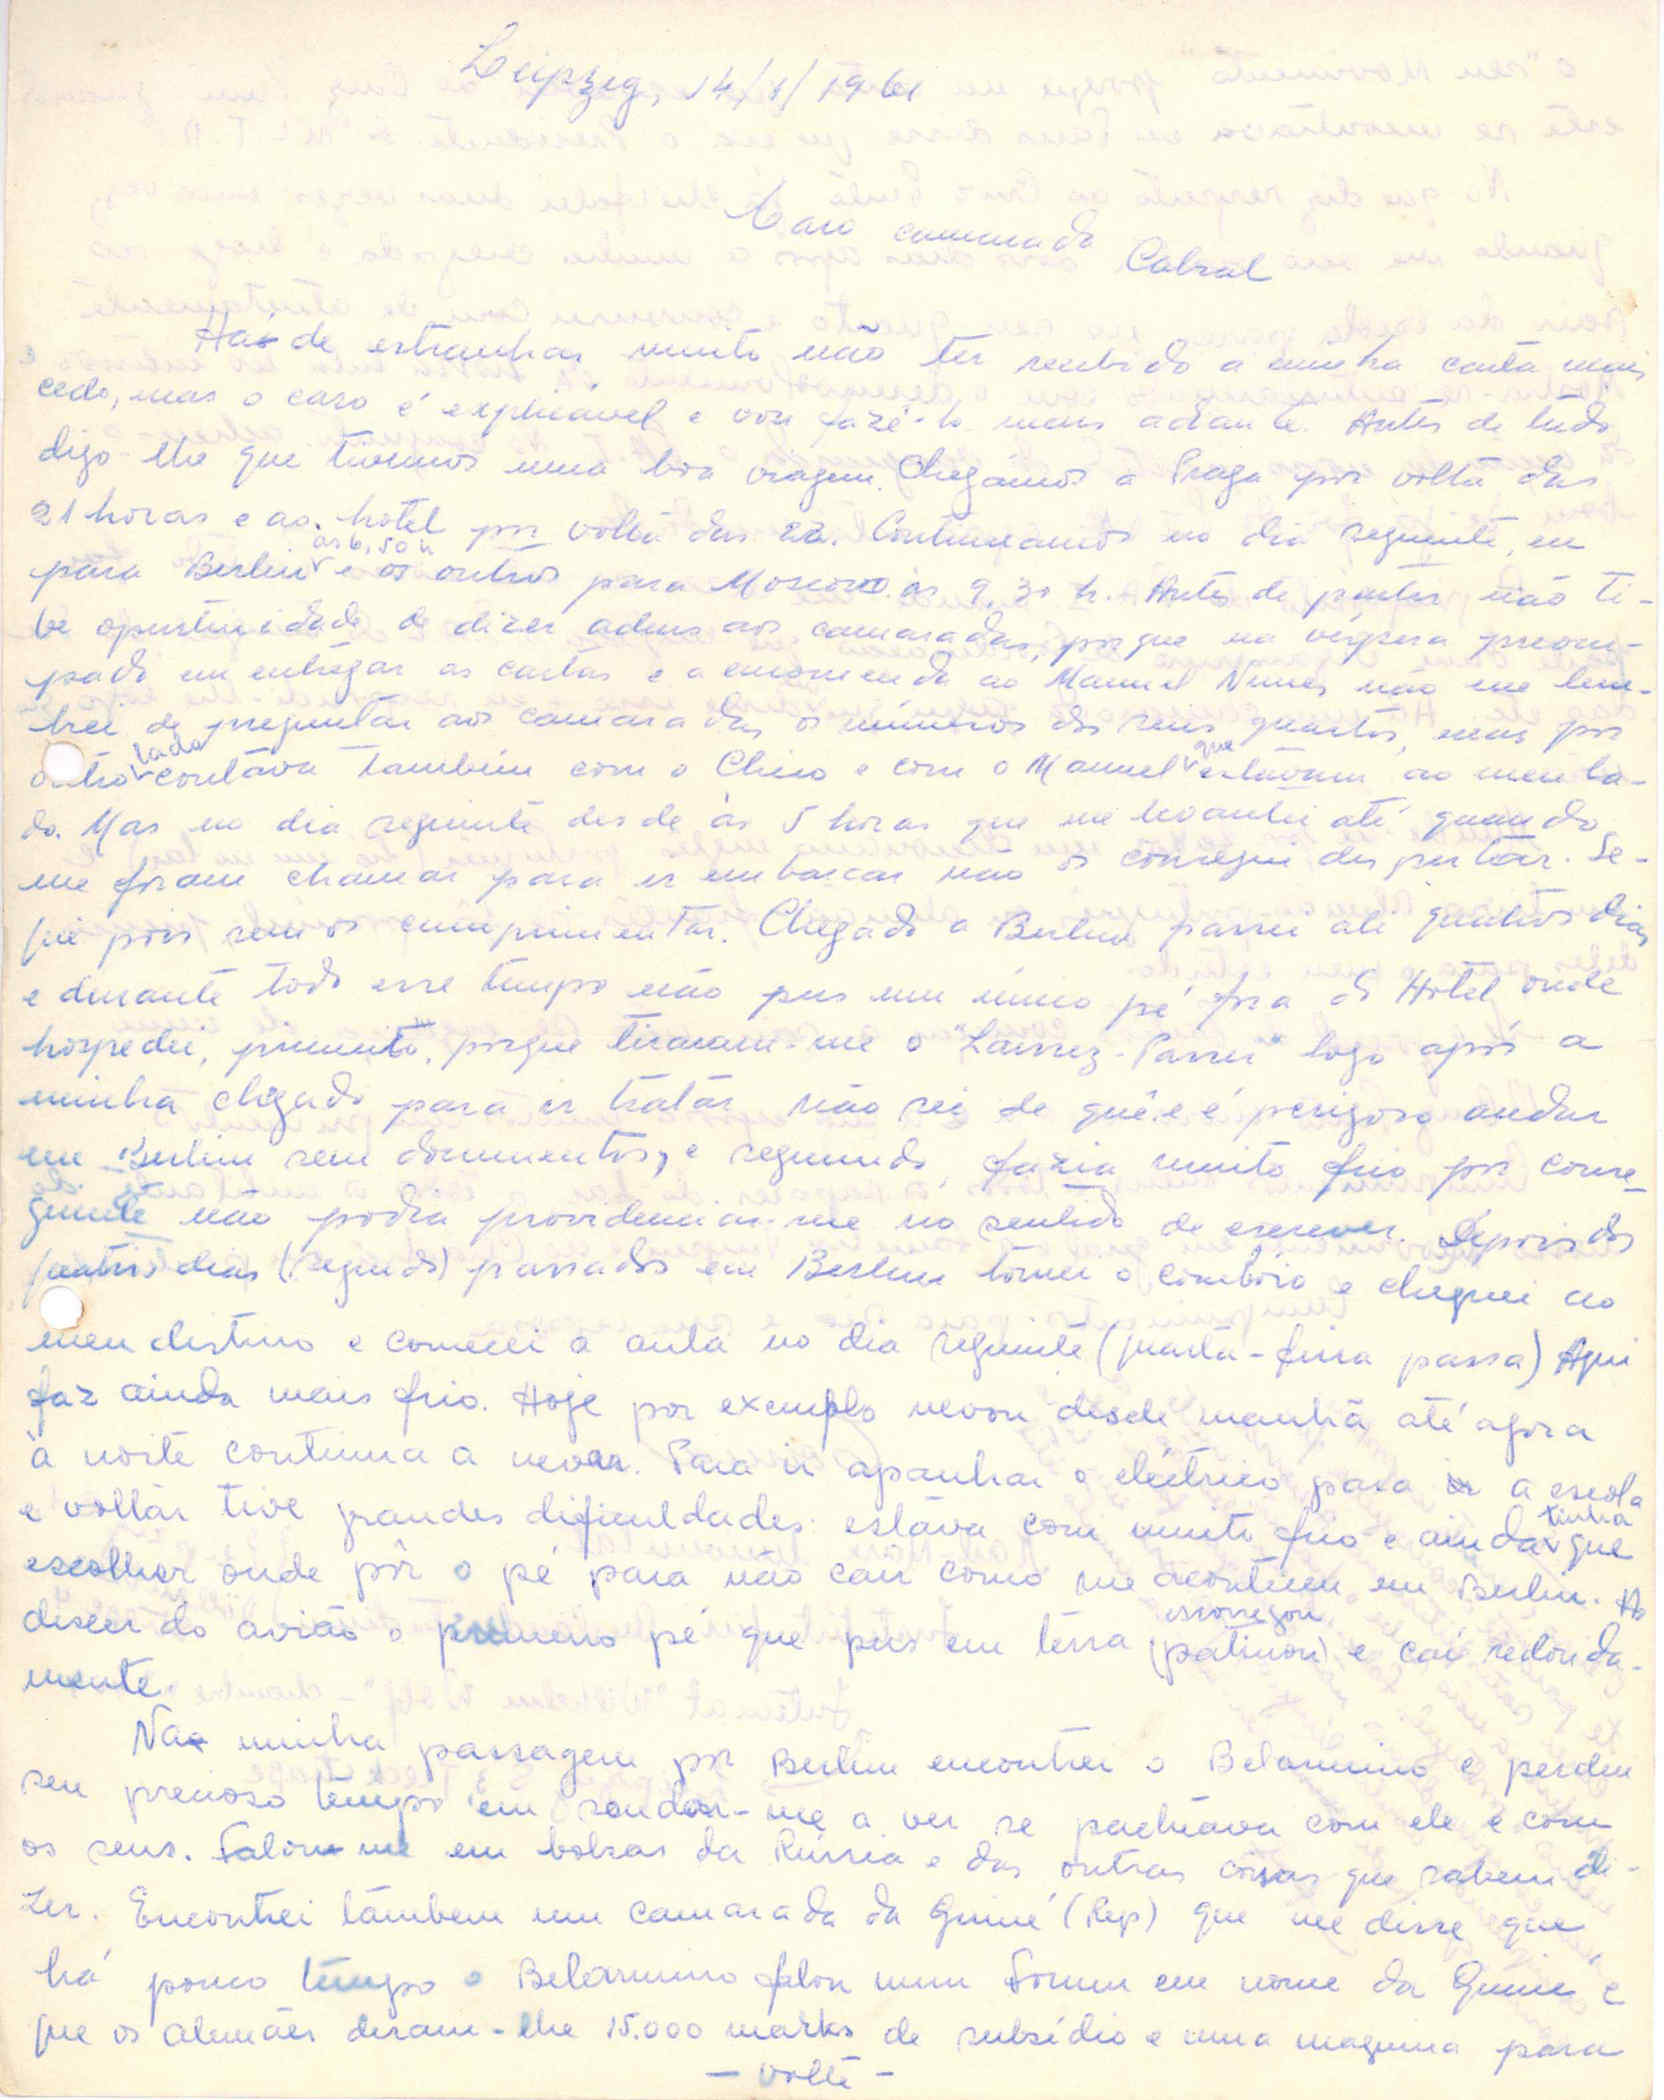 Leipzig, 14/1/1961
Caro camarada Cabral
Há de estranhar muito não ter recebido a minha carta mais
cedo, mas o caso é explicável e vou fazê-lo mais adiante. Antes de tudo
digo-lhe que tivemos uma boa viagem. Chegámos a Praga por volta das
21 horas e ao hotel por volta das 22. Continuamos no dia seguinte, eu
para Berlin às 6,50 h e os outros para Moscovo às 9,30 h. Antes de partir não ti-
be oportunidade de dizer adeus aos camaradas, porque na véspera preocu-
pado em entregar as cartas e a encomenda ao Manuel Nunes não me lem-
brei de preguntar aos camaradas os números dos seus quartos, mas por
outro lado contava também com o Chico e com o Manuel que estavam ao meu la-
do. Mas no dia seguinte desde às 5 horas que me levantei até quando
me foram chamar para ir embarcar não os consegui despertar. Se-
gui pois sem os cumprimentar. Chegado a Berlin passei ali quatros dias
e durante todo esse tempo não pus um único pé fora do Hotel onde
hospedei, primeiro, porque tiraram-me o "Laissez-Passer" logo após a
minha chegada para ir tratar não sei de quê e é perigoso andar
em Berlim sem documentos, e segundo, fazia muito frio por conse-
guinte não podia providenciar-me no sentido de escrever. Depois dos
quatros dias (segundo) passados em Berlin tomei o comboio e cheguei ao
meu destino e comecei a aula no dia seguinte (quarta-feira passa) Aqui
faz ainda mais frio. Hoje por exemplo nevou desde manhã até agora
à noite continua a nevar. Para ir apanhar o eléctrico para a escola
e voltar tive grandes dificuldades: estava com muito frio e ainda tinha que
escolher onde pôr o pé para não cair como me aconteceu em Berlin. Ao
descer do avião o primeiro pé que pus em terra escorregou (patinou) e caí redonda-
mente.
Na minha passagem por Berlim encontrei o Belarmino e perdeu
seu precioso tempo em sondar-me a ver se pactuava com ele e com
os seus. Falou-me em bolsas da Rússia e das outras coisas que sabem di-
zer. Encontrei também um camarada da Guiné (Rep) que me disse que
há pouco tempo o Belarmino falou num Forum em nome da Guiné e
que os alemães deram-lhe 15.000 marks de subsídio e uma maquina para
- volte -